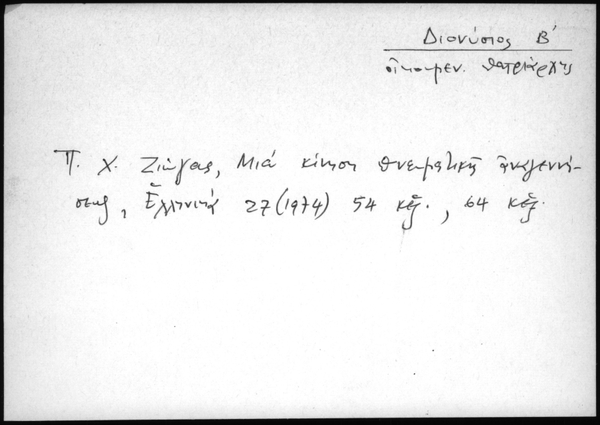 Διονύσιος Β΄
οἰκουμεν. πατριάρχης
Π. Χ. Ζιώγας, Μιά κίνηση πνευματικῆς ἀναγεννή-
σεως, Ἑλληνικά 27 (1974) 54 κἑξ., 64 κἑξ.